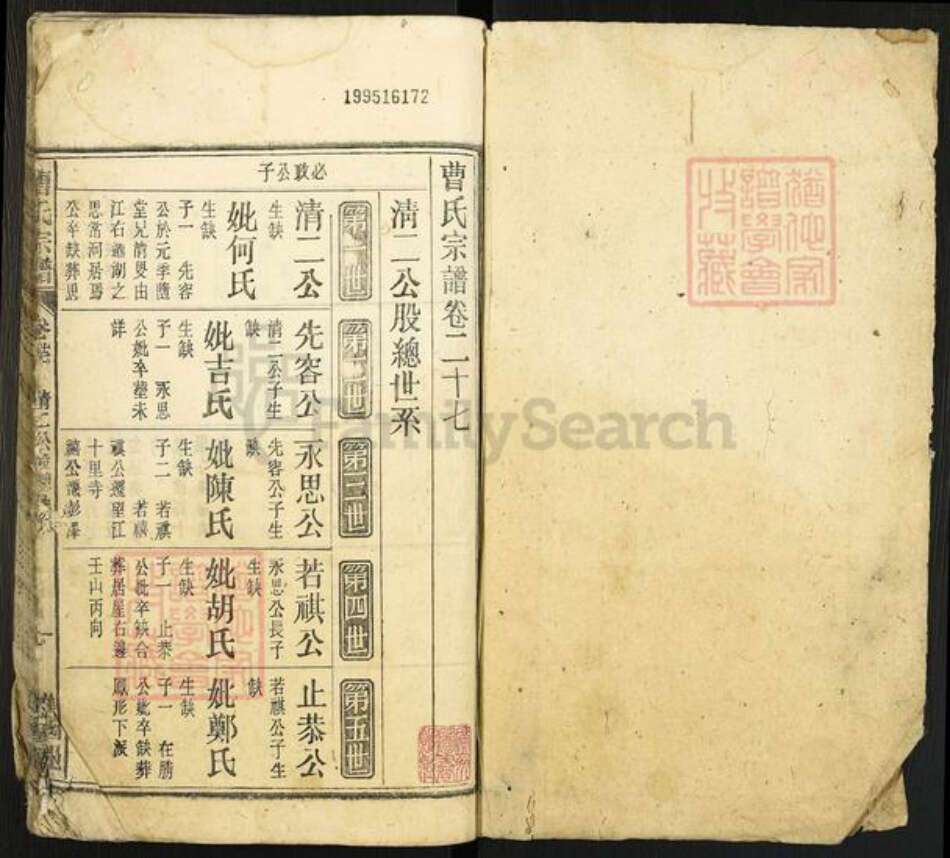 199516172
曹氏宗譜卷二十七
清二公股總世系
必敢公子
第一世
清二公
生缺
妣何氏
生缺
子一 先容
公於元季隨
堂兄清叟由
江右鄱湖之
思常河居焉
公卒缺葬思
第二世
先容公
清二公子生
缺
妣吉氏
生缺
子一 永思
公妣卒塟未
詳
第三世
永思公
先容公子生
缺
妣陳氏
生缺
子二 若祺
若禧
祺公遷望江
十里寺
禧公遷彭澤
第四世
若祺公
永思公長子
生缺
妣胡氏
生缺
子一 止恭
公妣卒缺合
葬居屋右邊
壬山丙向
第五世
止恭公
若祺公子生
缺
妣鄭氏
生缺
子一 在勝
公妣卒缺葬
鳳形下派
曹氏宗譜
FamilySearch